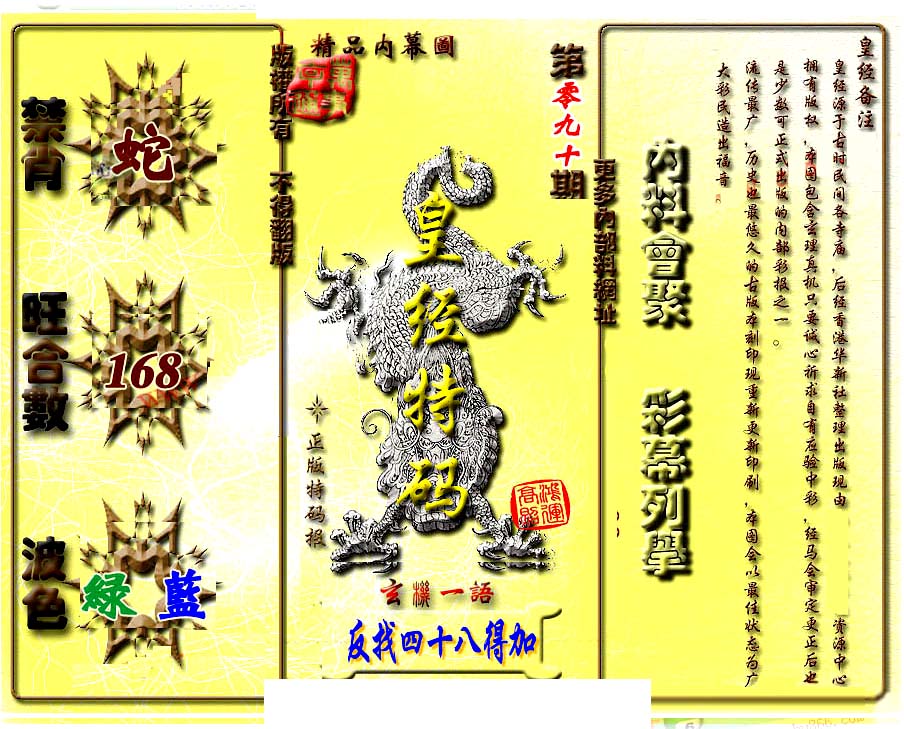 精品内幕圖
版權所有 不得翻版
第零九十期
更多內部料網址
禁肖
蛇
旺合數
168
波色
綠 藍
皇经特码
正版特码报
鴻運
高照
玄機一語
反找四十八得加
内料會聚 彩幕列舉
皇经备注
皇经源于古时民间各寺庙，后经香港华新社整理出版现由 资源中心
拥有版权，本图包含玄理真机只要诚心祈求自有应验中彩，经马会审定更正后也
是少数可正式出版的内部彩报之一。
流传最广，历史也最悠久的古版本刻印现重新更新印刷，本图会以最佳状态为广
大彩民造出福音